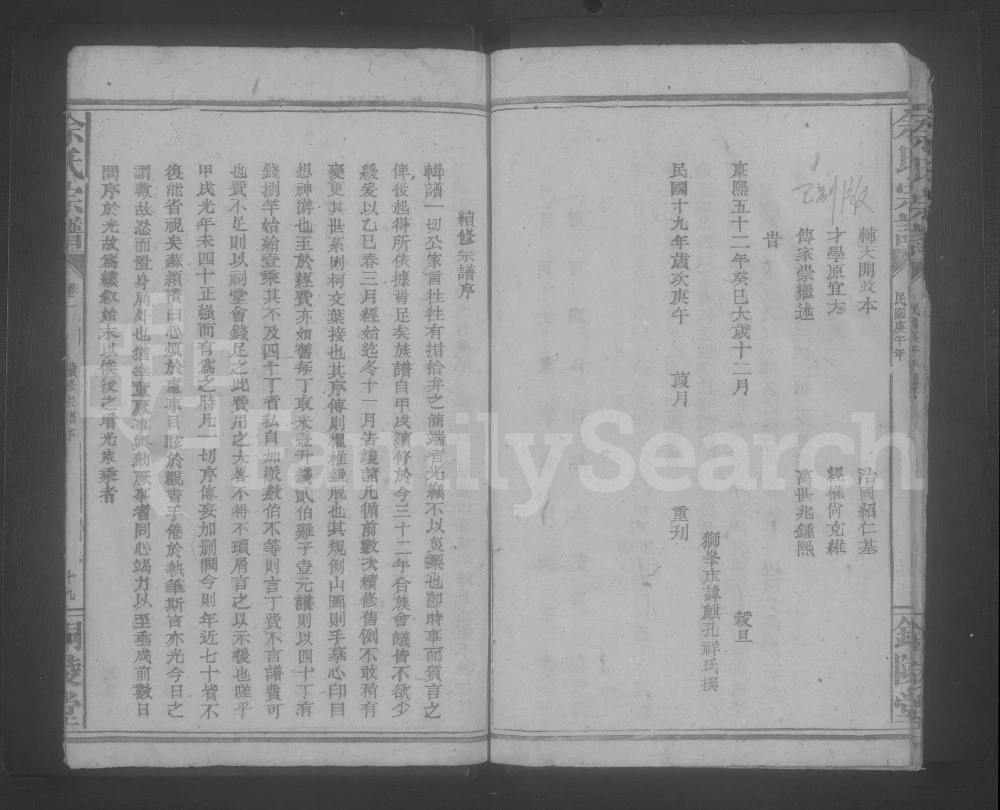 余氏宗譜
民國庚午年
銅陵堂
輔大開政本
治國紹仁基
才學原宜大
經權尚克維
傳家崇繼述
萬世兆鍾熙
旹
康熙五十二年癸巳大歲十二月
穀旦
獅峯庄諱麒孔祥氏撰
民國十九年歲次庚午
葭月
重刋
續修宗譜序
輯譜一切公家言往往有掯拾弁之簡端者光編不以災梨也卽時事而質言之
俾後起得所依據訾足矣族譜自甲戌續修於今三十二年合族會議皆不欲少
緩爰以乙巳春三月經始迄冬十一月告竣諸凡循前數次續修舊例不敢稍有
變更其世系則柯交葉接也其序傳則櫂椎鈕脫也其規例山圖則手摹心印目
想神游也至於經費亦如舊每丁取米壹升錢貳伯雞子壹元譜則以四十丁有
錢捌竿始給壹乘其不及四十丁者私自加派數伯不等則言丁費不言譜費可
也費不足則以祠堂會錢足之此費用之大畧不得不瑣屑言之以示後也嗟乎
甲戌光年未四十正强而有爲之時凡一切序傳妄加删潤今則年近七十眚不
復能省視矣蘇潁濱曰心煩於慮事目眩於觀書手倦於執筆斯言亦光今日之
謂敢故恣而置身局外也猶幸董厥事與勷厥事者同心竭力以至垂成前數日
問序於光故爲縷叙始末以俟後之增光家乘者
余氏宗譜
卷一
續修宗譜序
十九
銅陵堂
FamilySearch